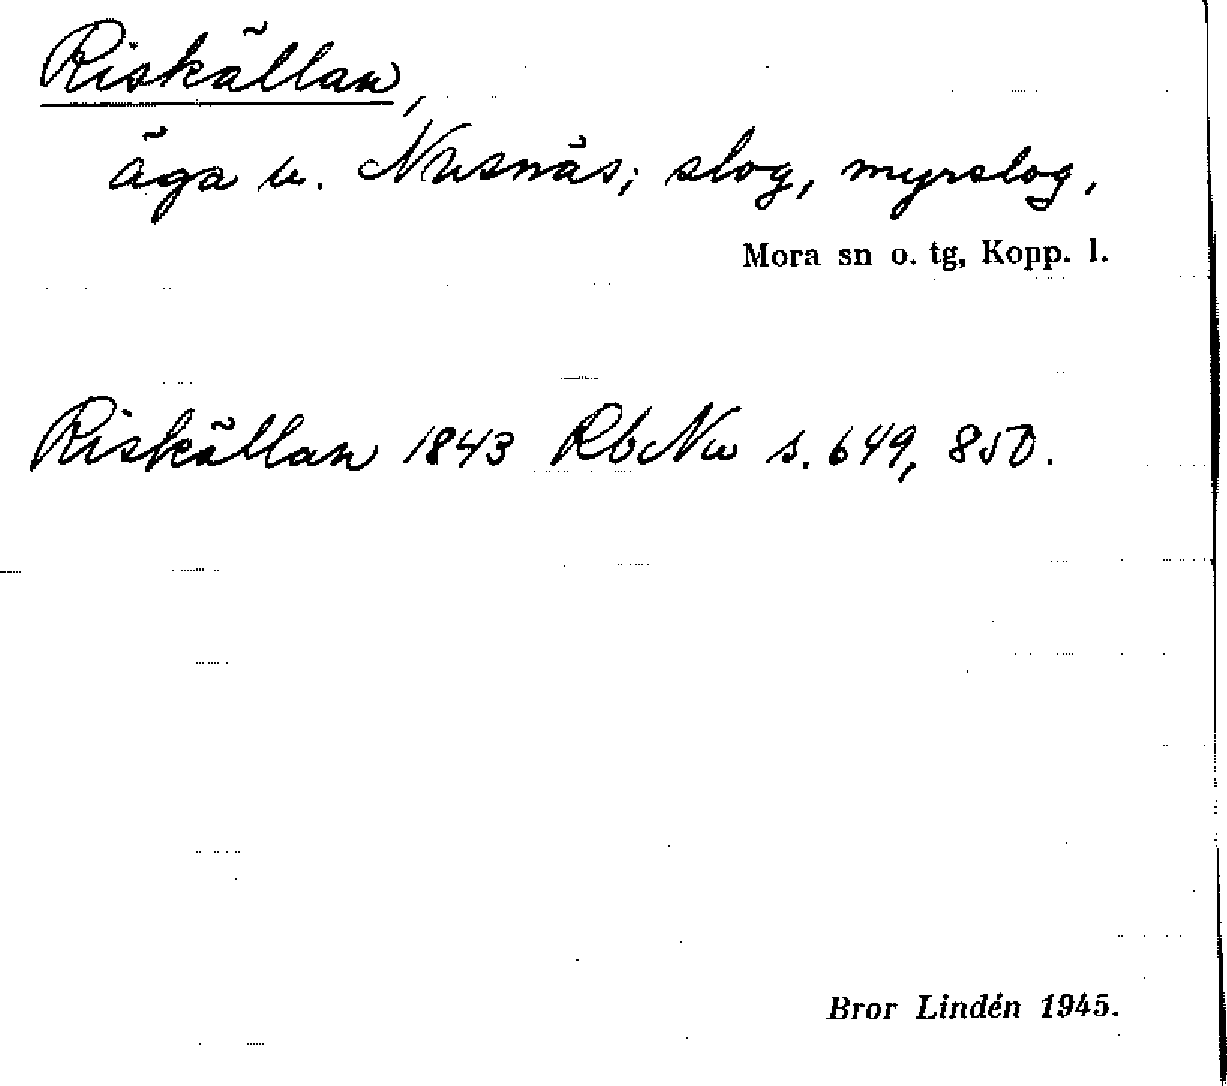 Riskällan,
äga u. Nusnäs; slog, myrslog,
Mora sn o. tg, Kopp. l.
Riskällan 1843 RbNu s. 649, 850.
Bror Lindén 1945.